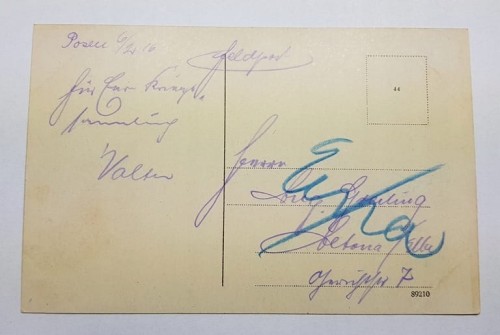 Posen 6/2 16
Feldpost
für Eure Kriegs-
sammlung
Walter
44
Herrn
Altona / Elbe
Gerichtstr 7
89210